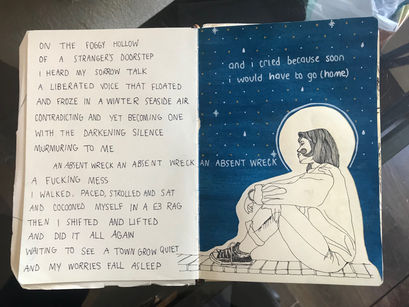 ON THE FOGGY HOLLOW
OF A STRANGER'S DOORSTEP
I HEARD MY SORROW TALK
A LIBERATED VOICE THAT FLOATED
AND FROZE IN A WINTER SEASIDE AIR
CONTRADICTING AND YET BECOMING ONE
WITH THE DARKENING SILENCE
MURMURING TO ME
AN ABSENT WRECK AN ABSENT WRECK AN ABSENT WRECK
A FUCKING MESS
I WALKED. PACED, STROLLED AND SAT
AND COCOONED MYSELF IN A £3 RAG
THEN I SHIFTED AND LIFTED
AND DID IT ALL AGAIN
WAITING TO SEE A TOWN GROW QUIET
AND MY WORRIES FALL ASLEEP
and i cried because soon
i would have to go (home)